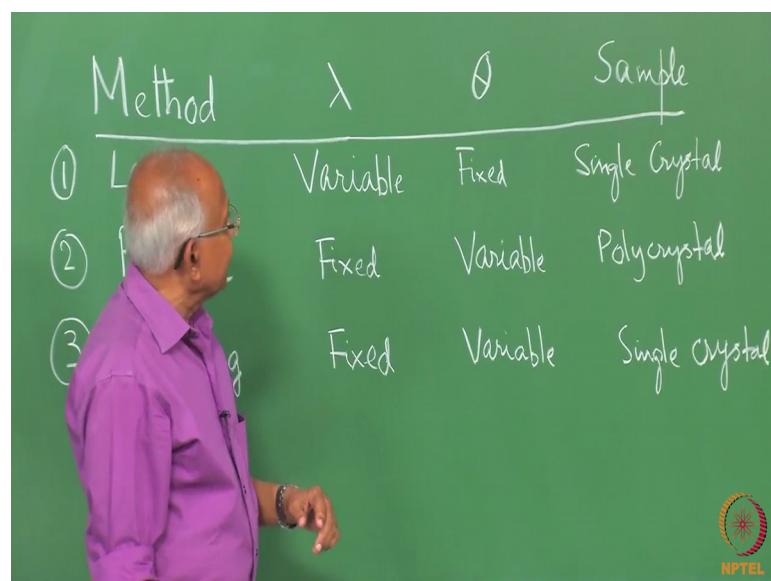 Method λ θ Sample
① Variable Fixed Single Crystal
② Fixed Variable Polycrystal
③ Fixed Variable Single crystal
NPTEL